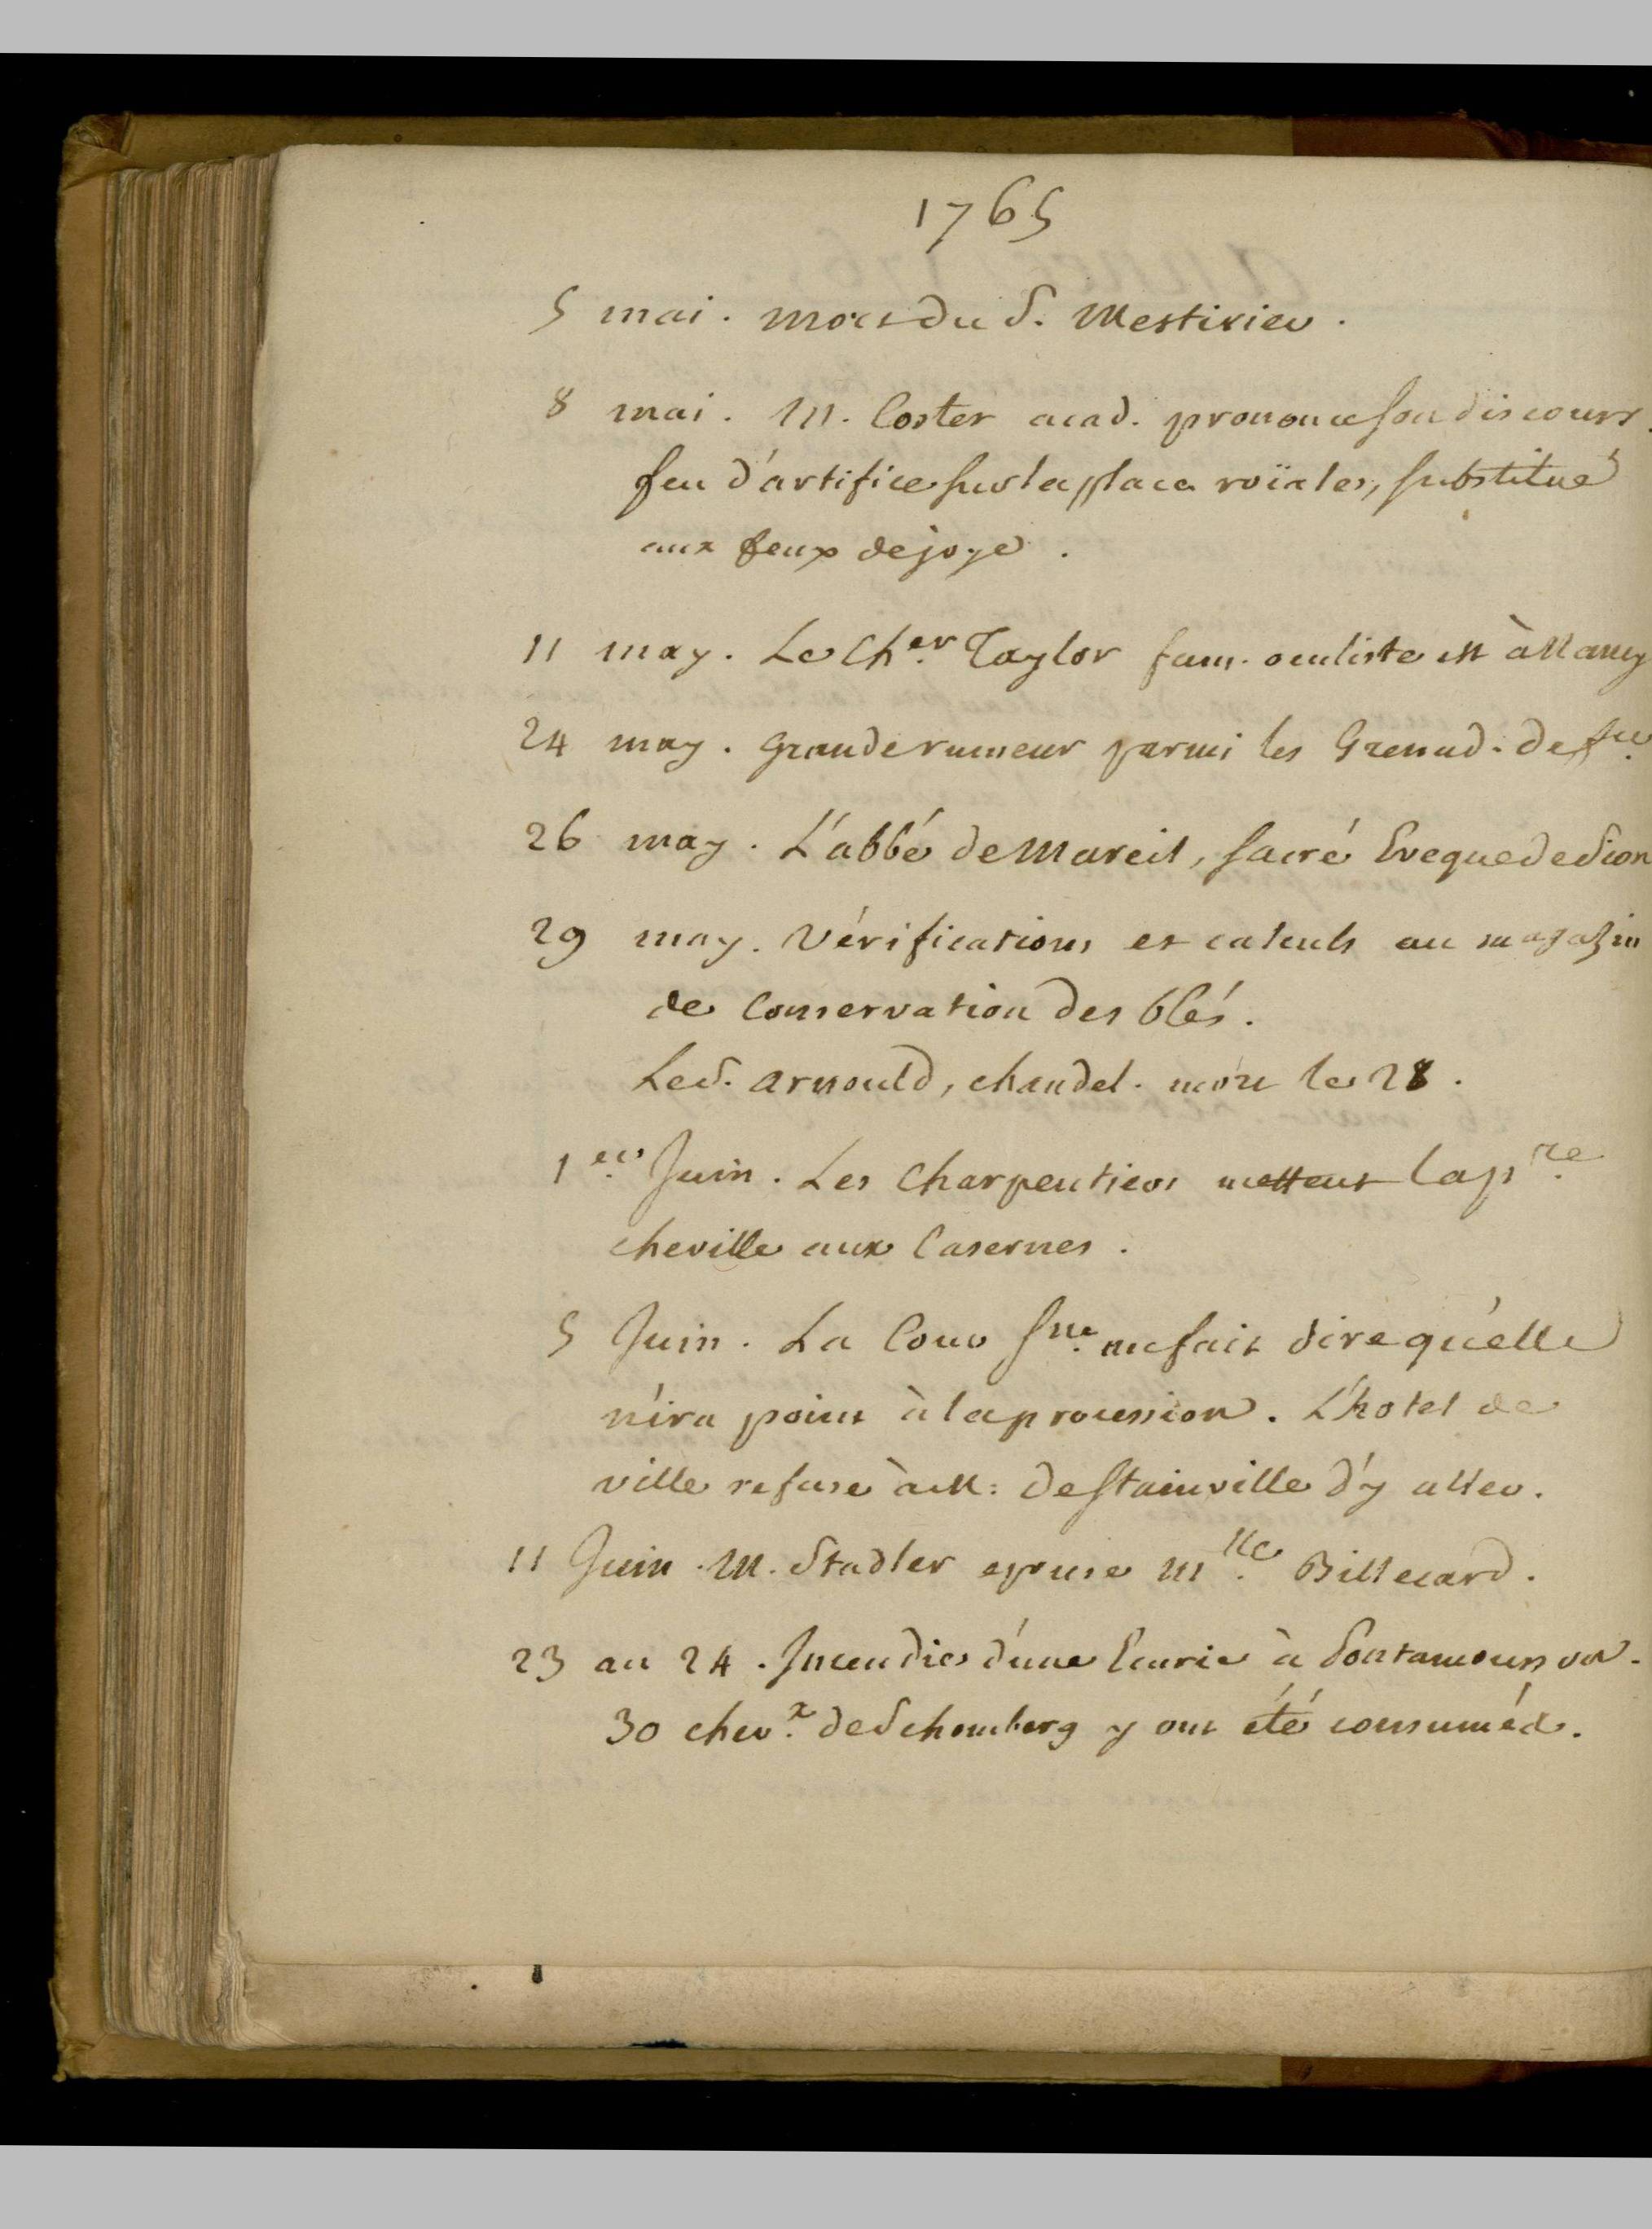 1765
5 mai. Mort du S. Mestivier.
8 mai. M. Coster acad. prononce son discours.
feu d'artifice sur la place roïale, substitué
aux feux de joye.
11 may. Le Ch.er Taylor fam. oculiste est à Nancy
24 may. Grande rumeur parmi les Grenad. de f.ce
26 may. L'abbé de Mareil, sacré Eveque de Sion
29 may. Vérifications et calculs au magazin
de Conservation des blés.
Le S. Arnould, chandel. mort le 28.
1.er Juin. Les Charpentiers mettent la p.re
cheville aux Casernes.
5 Juin. La Cour S.ne me fait dire qu'elle
n'ira point à la procession. L'hotel de
ville refuse à M. de Stainville d'y aller.
11 Juin. M. Stadler epouse M.lle Billecard.
23 au 24. Incendie d'une Ecurie à Pontamousson.
30 chev.x de Schomberg y ont été consumés.